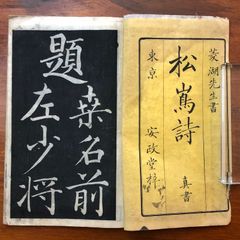 菱湖先生書
松嶌詩
真書
東京 安政堂梓
桑名前
題左少将